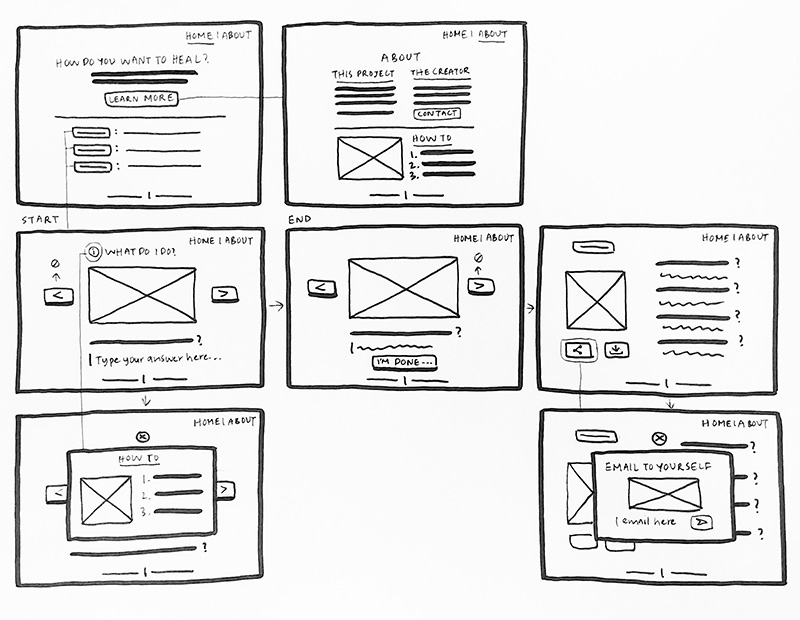 HOME | ABOUT
HOW DO YOU WANT TO HEAL?
LEARN MORE
:
:
:
HOME | ABOUT
ABOUT
THIS PROJECT
THE CREATOR
CONTACT
HOW TO
1.
2.
3.
START
HOME | ABOUT
i WHAT DO I DO?
<
>
?
Type your answer here...
END
HOME | ABOUT
<
>
?
I'M DONE...
HOME | ABOUT
?
?
?
HOME | ABOUT
HOW TO
1.
2.
3.
<
>
?
HOME | ABOUT
?
EMAIL TO YOURSELF
?
email here
?
?